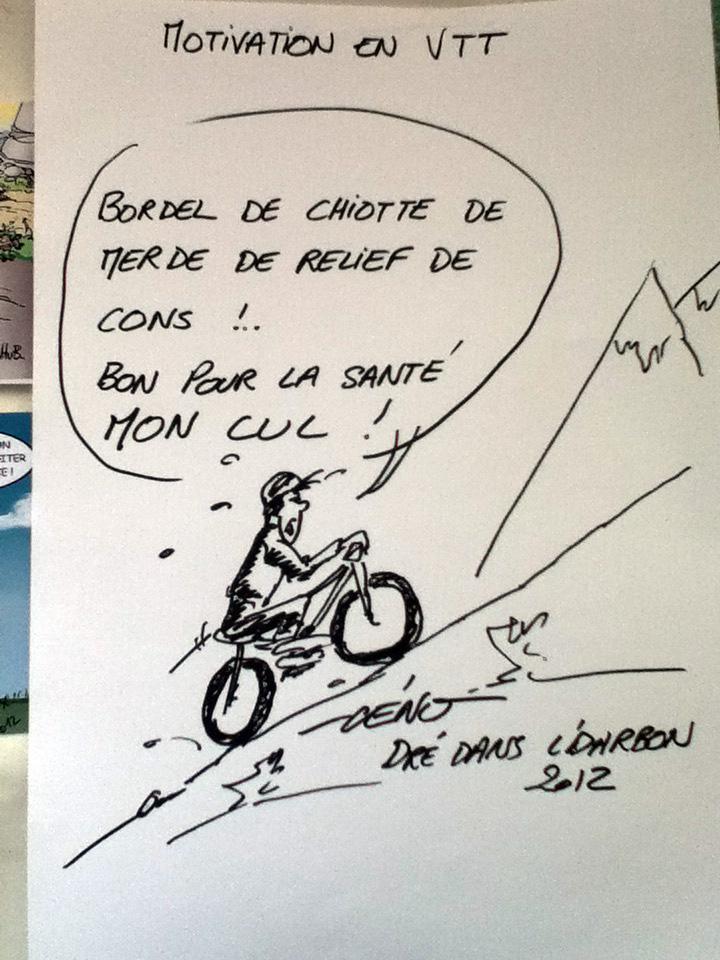 MOTIVATION EN VTT
BORDEL DE CHIOTTE DE
MERDE DE RELIEF DE
CONS !..
BON POUR LA SANTÉ
MON CUL !
DÉNO
DRÉ DANS L'DARBON
2012
HUB